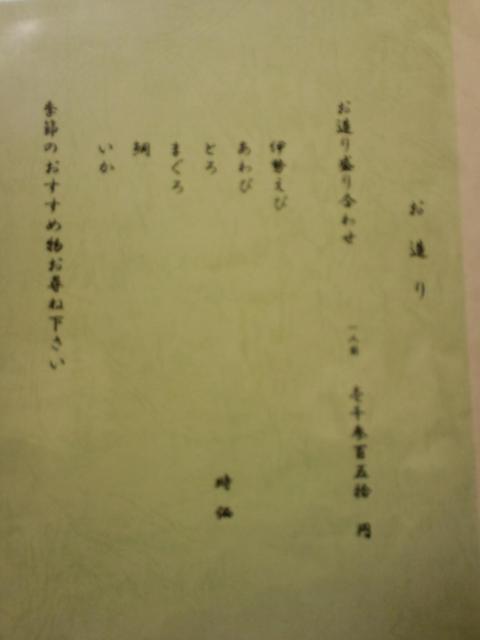 お造り
お造り盛り合わせ 一人前 壱千参百五拾円
伊勢えび
あわび
とろ
まぐろ
鯛
いか
時価
季節のおすすめ物お尋ね下さい